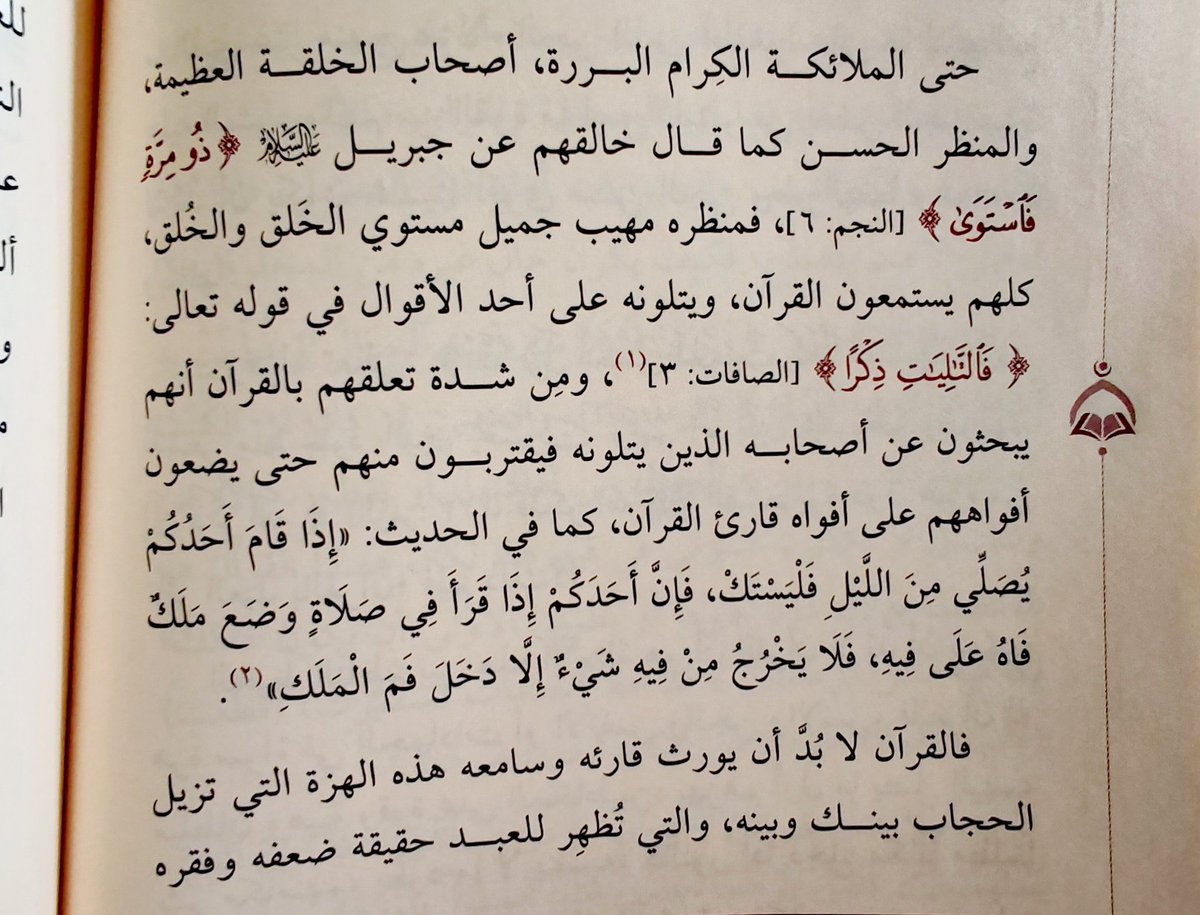 حتى الملائكة الكِرام البررة، أصحاب الخلقة العظيمة،
والمنظر الحسن كما قال خالقهم عن جبريل عليه السلام ﴿ذُو مِرَّةٍ
فَٱسْتَوَىٰ﴾ [النجم: ٦]، فمنظره مهيب جميل مستوي الخَلق والخُلق،
كلهم يستمعون القرآن، ويتلونه على أحد الأقوال في قوله تعالى:
﴿فَٱلتَّٰلِيَٰتِ ذِكْرًا﴾ [الصافات: ٣](١)، ومِن شدة تعلقهم بالقرآن أنهم
يبحثون عن أصحابه الذين يتلونه فيقتربون منهم حتى يضعون
أفواههم على أفواه قارئ القرآن، كما في الحديث: «إِذَا قَامَ أَحَدُكُمْ
يُصَلِّي مِنَ اللَّيْلِ فَلْيَسْتَكْ، فَإِنَّ أَحَدَكُمْ إِذَا قَرَأَ فِي صَلَاةٍ وَضَعَ مَلَكٌ
فَاهُ عَلَى فِيهِ، فَلَا يَخْرُجُ مِنْ فِيهِ شَيْءٌ إِلَّا دَخَلَ فَمَ الْمَلَكِ»(٢).
فالقرآن لا بُدَّ أن يورث قارئه وسامعه هذه الهزة التي تزيل
الحجاب بينك وبينه، والتي تُظهِر للعبد حقيقة ضعفه وفقره